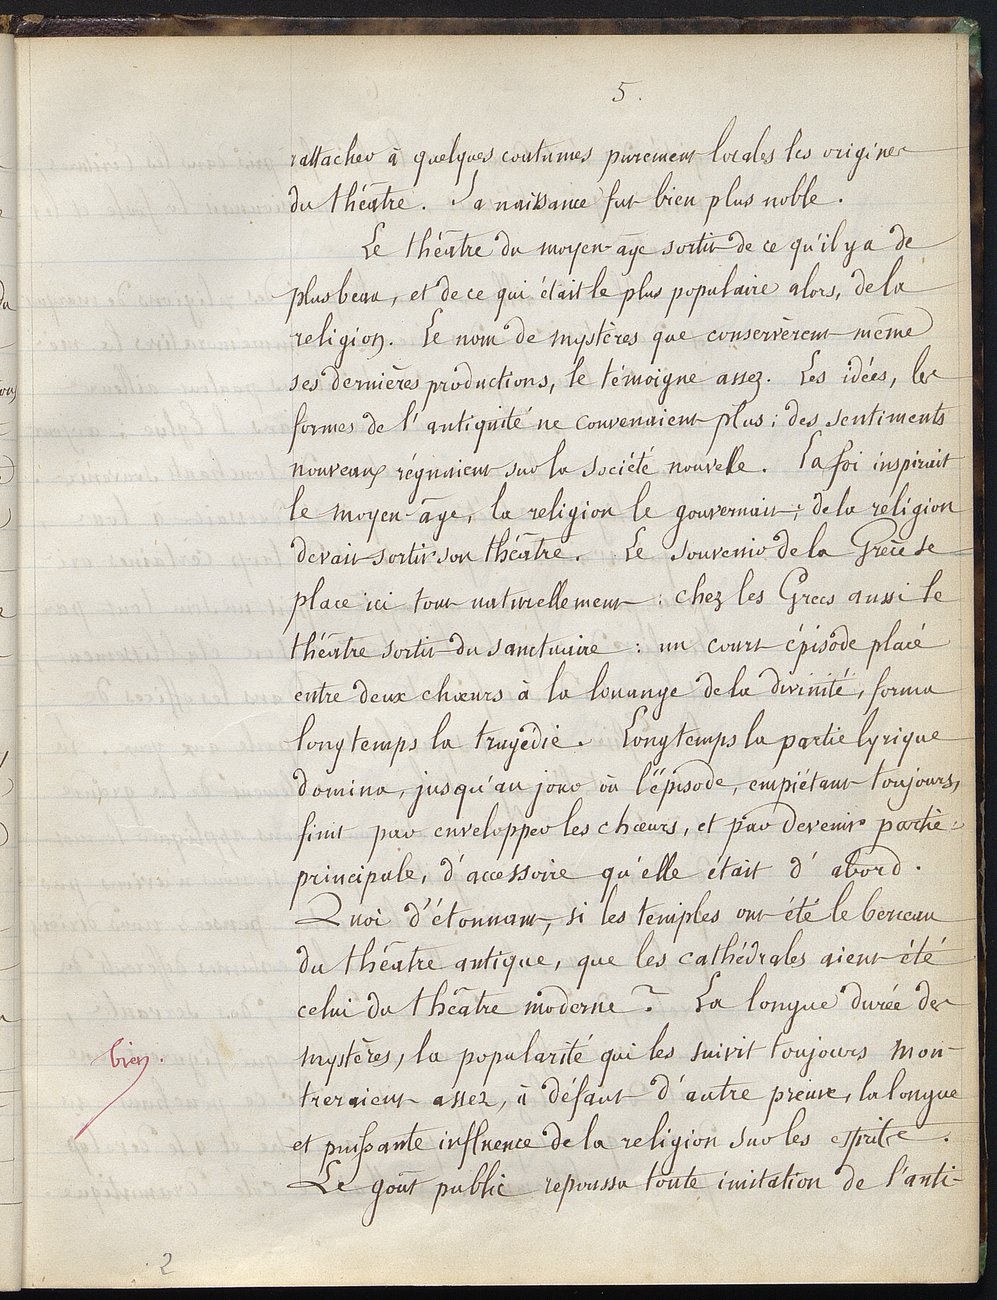 5.
rattacher à quelques coutumes purement locales les origines
du théâtre. Sa naissance fut bien plus noble.
Le théâtre du moyen-âge sortit de ce qu'il y a de
plus beau, et de ce qui était le plus populaire alors, de la
religion. Le nom de mystères que conservèrent même
ses dernières productions, le témoigne assez. Les idées, les
formes de l'antiquité ne convenaient plus; des sentiments
nouveaux régnaient sur la société nouvelle. La foi inspirait
le moyen-âge, la religion le gouvernait; de la réligion
devait sortir son théâtre. Le souvenir de la Grèce se
place ici tout naturellement: chez les Grecs aussi le
théâtre sortit du sanctuaire: un court épisode placé
entre deux chœurs à la louange de la divinité, forma
longtemps la tragédie. Longtemps la partie lyrique
domina, jusqu'au jour où l'épisode, empiétant toujours,
finit par envelopper les chœurs, et par devenir partie
principale, d'accessoire qu'elle était d'abord.
Quoi d'étonnant, si les temples ont été le berceau
du théâtre antique, que les cathédrales aient été
celui du théâtre moderne? La longue durée des
mystères, la popularité qui les suivit toujours mon-
bien.
treraient assez, à défaut d'autre preuve, la longue
et puissante influence de la religion sur les esprits.
Le goût public repoussa toute imitation de l'anti-
2